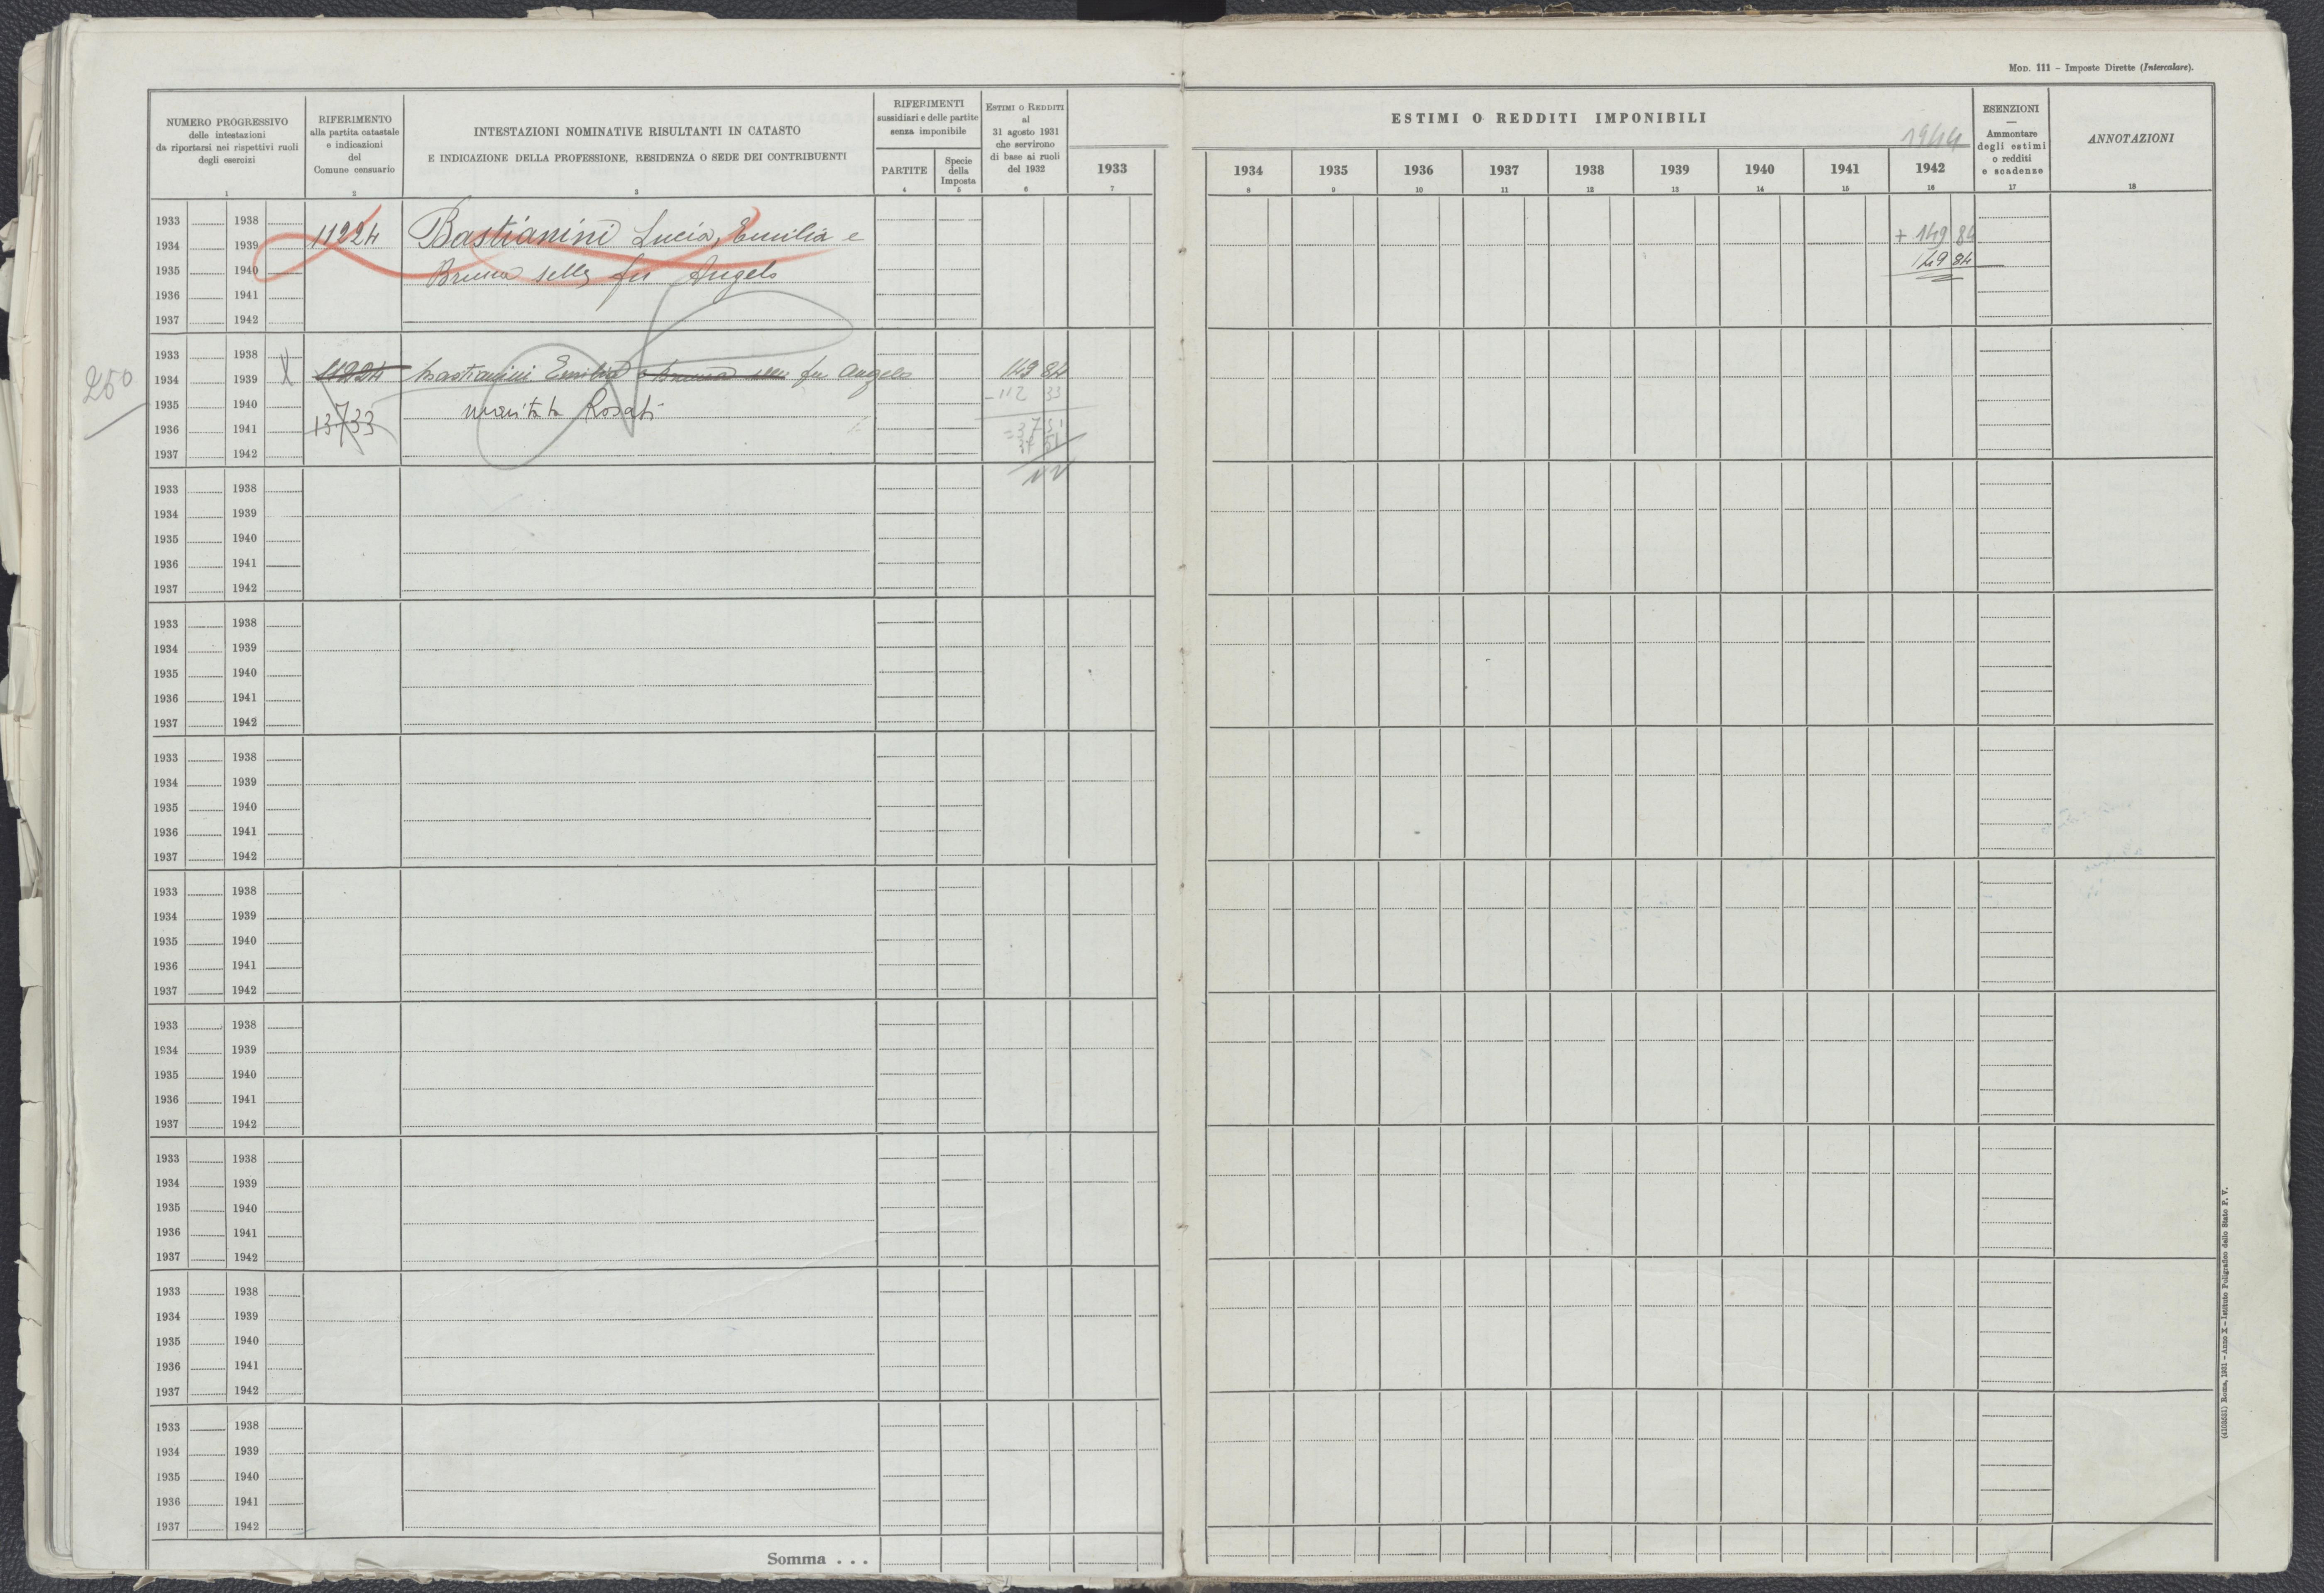 MOD. 111 – Imposte Dirette (Intercalare).
NUMERO PROGRESSIVO
delle intestazioni
da riportarsi nei rispettivi ruoli
degli esercizi
1
RIFERIMENTO
alla partita catastale
e indicazioni
del
Comune censuario
2
INTESTAZIONI NOMINATIVE RISULTANTI IN CATASTO
E INDICAZIONE DELLA PROFESSIONE, RESIDENZA O SEDE DEI CONTRIBUENTI
3
RIFERIMENTI
sussidiari e delle partite
senza imponibile
PARTITE
4
Specie
della
Imposta
5
ESTIMI O REDDITI
al
31 agosto 1931
che servirono
di base ai ruoli
del 1932
6
ESTIMI O REDDITI IMPONIBILI
1944
1933 1934 1935 1936 1937 1938 1939 1940 1941 1942
7 8 9 10 11 12 13 14 15 16
ESENZIONI
—
Ammontare
degli estimi
o redditi
e scadenze
17
ANNOTAZIONI
18
1933 1938
11224 Bastianini Lucia, Emilia e + 149 84
1934 1939
Bruna selle fu Angelo 149 84
1935 1940
1936 1941
1937 1942
250
1933 1938 X
1934 1939 11224 Bastianini Emilia e Bruna selle fu Angelo 149 84
1935 1940 maritata Rosati - 112 33
1936 1941 13733 = 37 51
1937 1942 37 51
1933 1938
1934 1939
1935 1940
1936 1941
1937 1942
1933 1938
1934 1939
1935 1940
1936 1941
1937 1942
1933 1938
1934 1939
1935 1940
1936 1941
1937 1942
1933 1938
1934 1939
1935 1940
1936 1941
1937 1942
1933 1938
1934 1939
1935 1940
1936 1941
1937 1942
1933 1938
1934 1939
1935 1940
1936 1941
1937 1942
1933 1938
1934 1939
1935 1940
1936 1941
1937 1942
1933 1938
1934 1939
1935 1940
1936 1941
1937 1942
Somma . . .
Roma, 1931 – Anno X – Istituto Poligrafico dello Stato P. V.